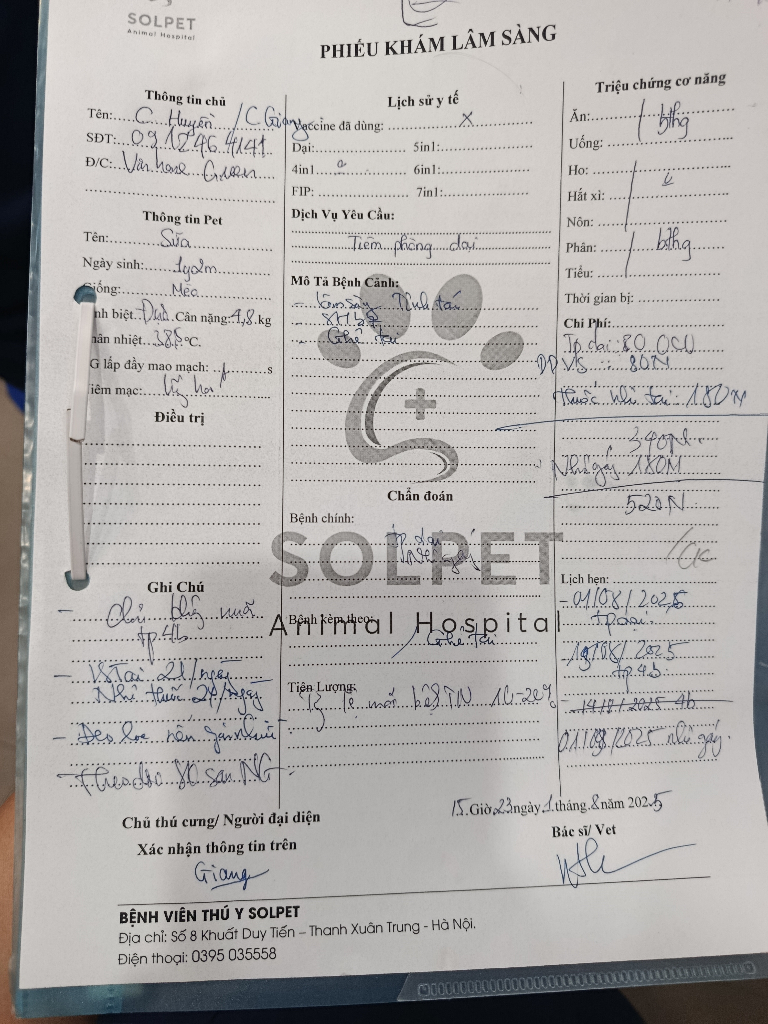 SOLPET
Animal Hospital
PHIẾU KHÁM LÂM SÀNG
Thông tin chủ
Tên: C Huyền / C Giang
SĐT: 091 246 4141
Đ/C: Vinhome Green
Thông tin Pet
Tên: Sữa
Ngày sinh: 1y2m
Giống: Mèo
Cân nặng: 4,8 kg
nhiệt 38,5 °C.
lấp đầy mao mạch: s
iêm mạc:
Điều trị
Ghi Chú
tp 4b
- VS Tai 2l/ngày
Nhỏ thuốc 2l/ngày
- Đeo loa
Theo dõi SK sau
Lịch sử y tế
Vaccine đã dùng: X
Dại: 5in1:
4in1 6in1:
FIP: 7in1:
Dịch Vụ Yêu Cầu:
Tiêm phòng dại
Mô Tả Bệnh Cảnh:
- Lâm sàng Tỉnh táo
- Ghẻ tai
Chẩn đoán
Bệnh chính:
tp dại
Bệnh kèm theo:
Ghẻ Tai
Tiên Lượng:
Tỷ lệ 10-20%
Triệu chứng cơ năng
Ăn: bthg
Uống:
Ho:
Hắt xì:
Nôn:
Phân: bthg
Tiểu:
Thời gian bị:
Chi Phí:
Tp dại: 80.000
VS : 80N
thuốc nhỏ tai: 180N
340N
Nhỏ gáy 180N
520N
Lịch hẹn:
- 01/08/2025
tp dại
19/08/2025
tp 4b
- 14/8/2025 4b
01/08/2025 nhỏ gáy
15 Giờ 23 ngày 1 tháng 8 năm 2025
Chủ thú cưng/ Người đại diện
Xác nhận thông tin trên
Giang
Bác sĩ/ Vet
SOLPET
Animal Hospital
BỆNH VIỆN THÚ Y SOLPET
Địa chỉ: Số 8 Khuất Duy Tiến – Thanh Xuân Trung - Hà Nội.
Điện thoại: 0395 035558